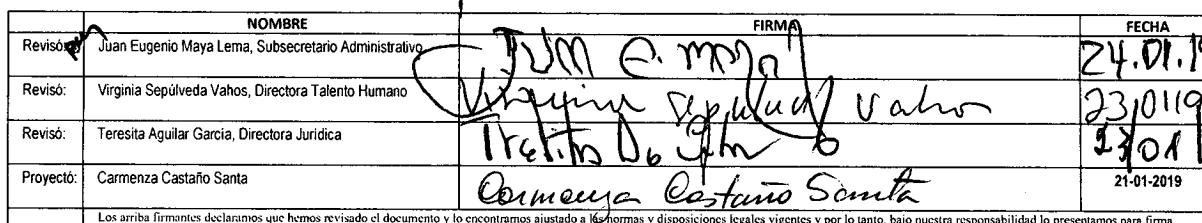 NOMBRE FIRMA FECHA
Revisó: Juan Eugenio Maya Lema, Subsecretario Administrativo Juan E. Maya 24.01.1
Revisó: Virginia Sepúlveda Vahos, Directora Talento Humano Virginia Sepulveda Vahos 23/0119
Revisó: Teresita Aguilar Garcia, Directora Jurídica 23/01
Proyectó: Carmenza Castaño Santa Carmenza Castaño Santa 21-01-2019
Los arriba firmantes declaramos que hemos revisado el documento y lo encontramos ajustado a las normas y disposiciones legales vigentes y por lo tanto, bajo nuestra responsabilidad lo presentamos para firma.